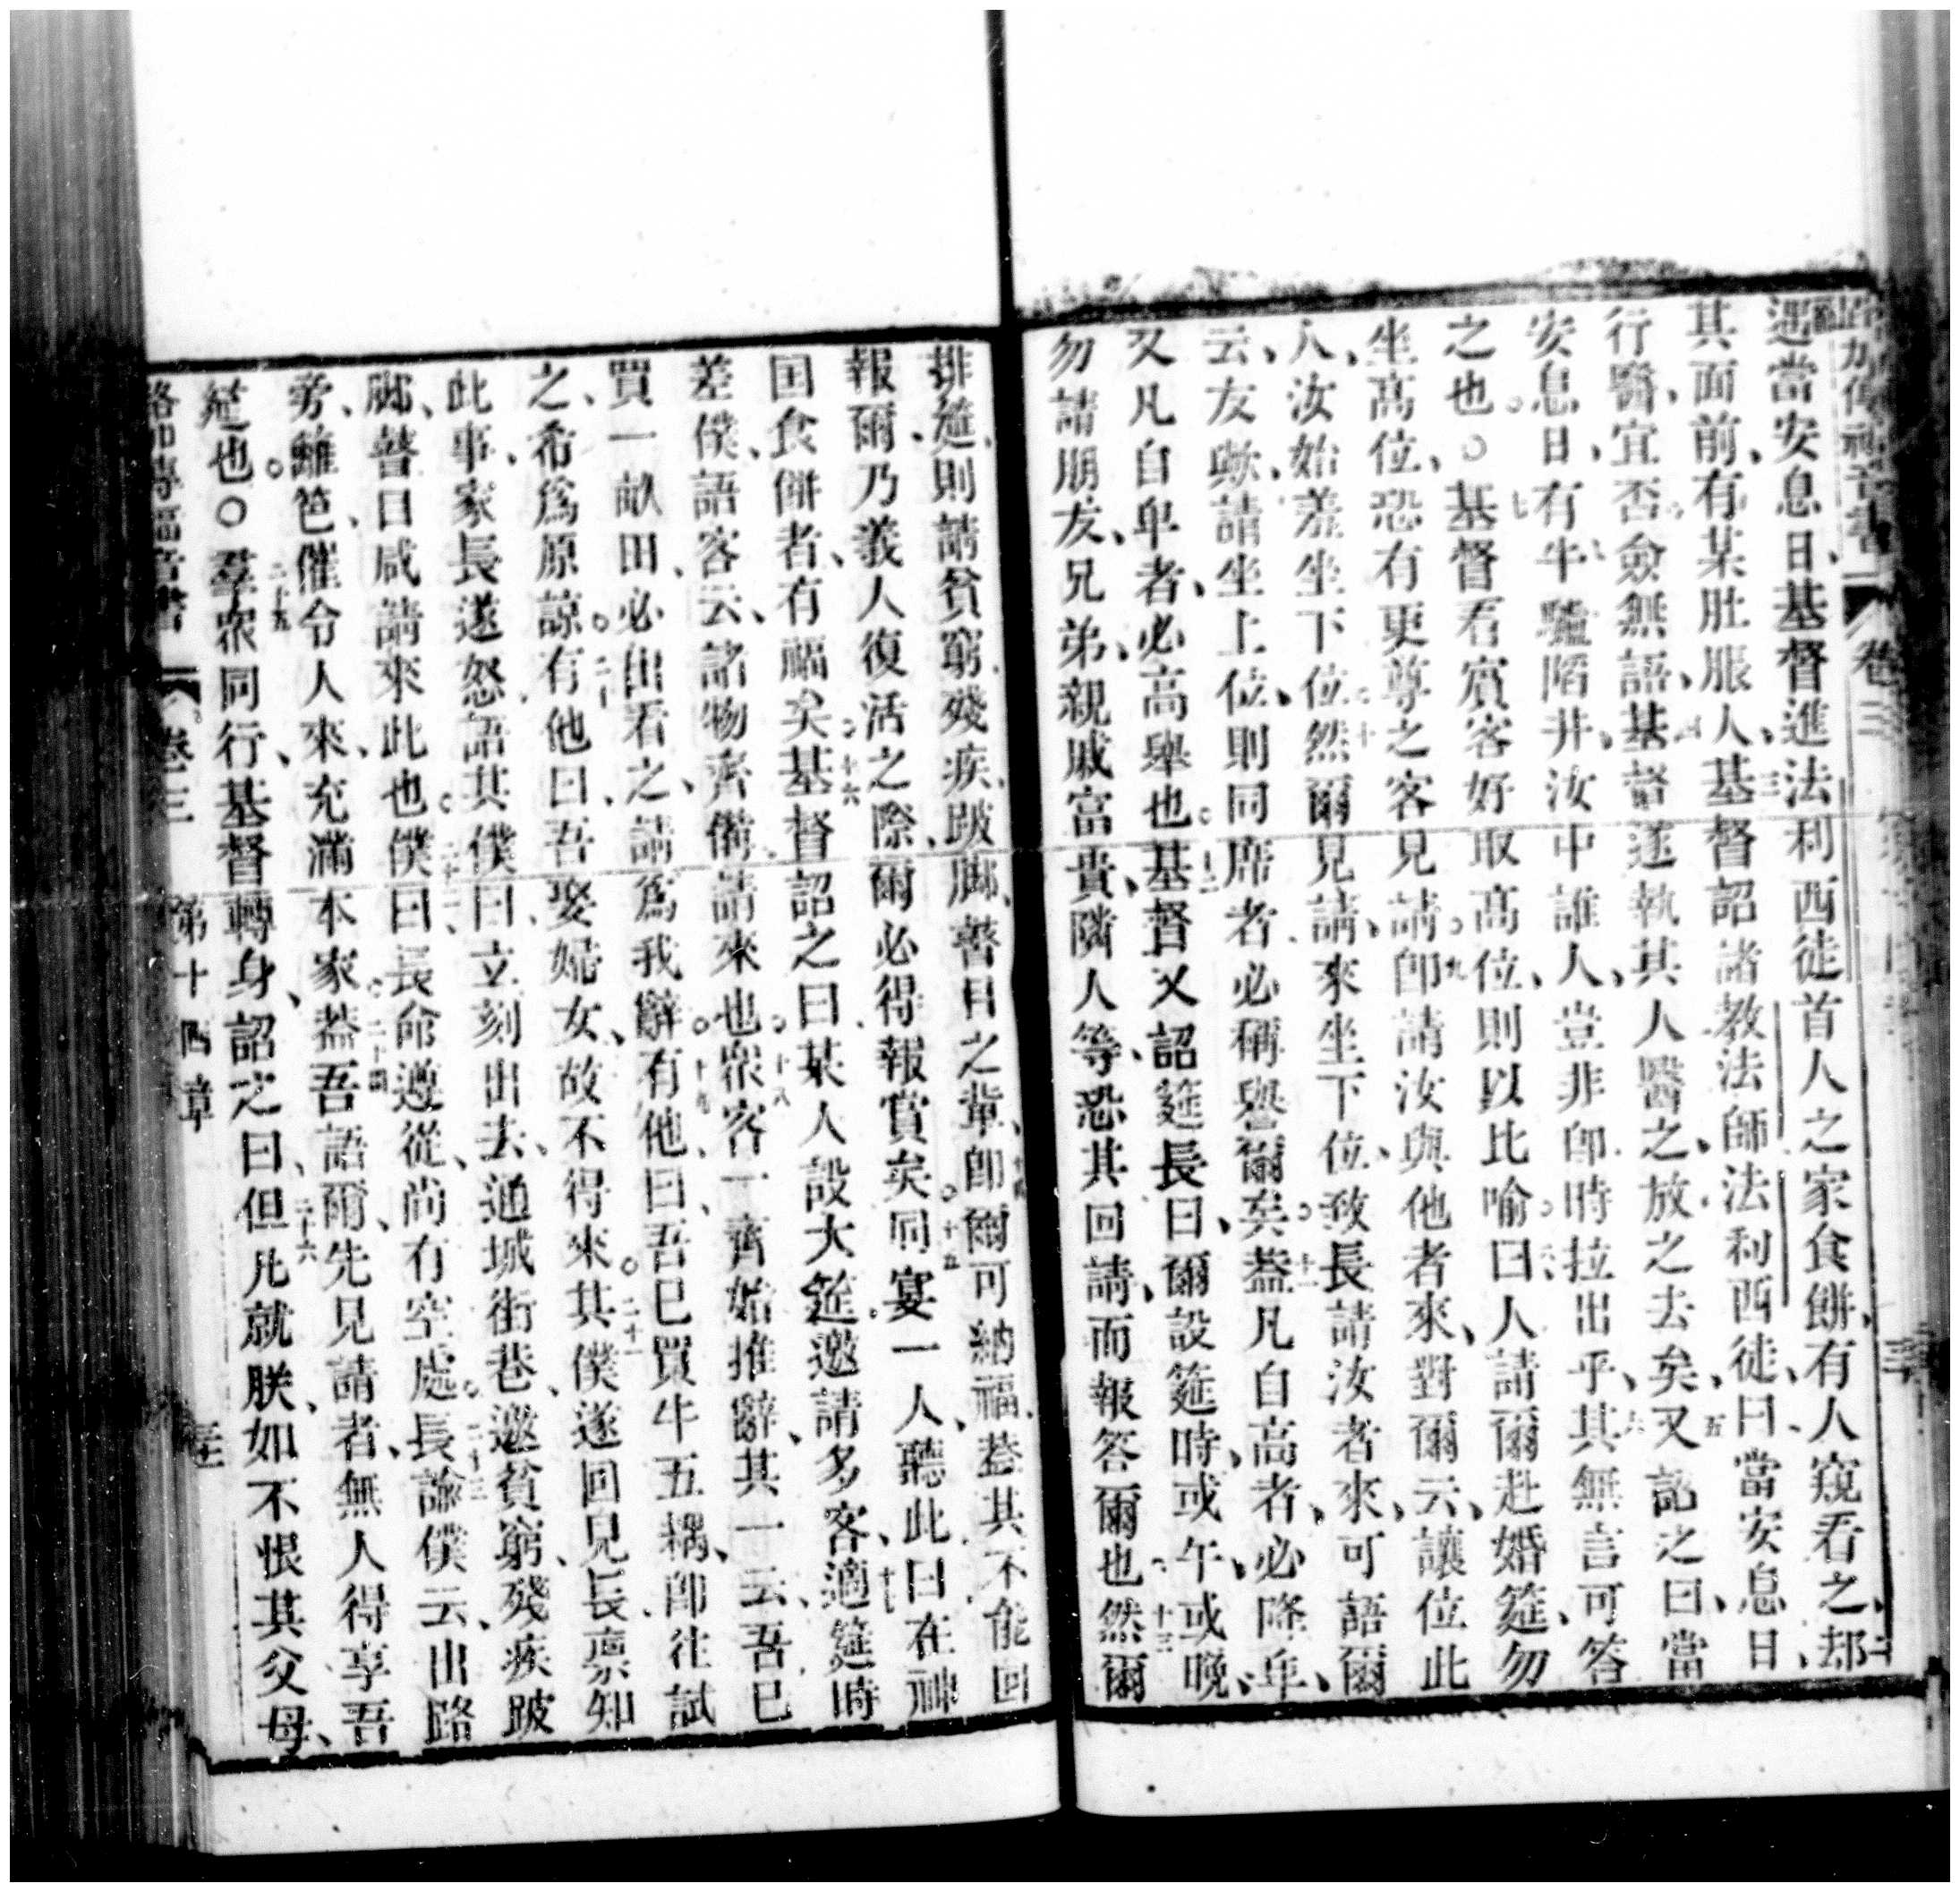 遇當安息日、基督進法利西徒首人之家食餅、有人窺看之、二却
其面前、有某肚脹人、三基督詔諸教法師法利西徒、曰、當安息日、
行醫、宜否、僉無語、四基督遂執其人醫之、放之去矣、五又詔之曰、當
安息日、有牛驢陷井、汝中誰人、豈非即時拉出乎、六其無言可答
之也。〇七基督看賓客好取高位、則以比喻曰、八人請爾赴婚筵、勿
坐高位、恐有更尊之客見請。九即請汝與他者來、對爾云、讓位此
人、汝始羞坐下位。十然爾見請、來坐下位、致長請汝者來、可語爾
云、友歟、請坐上位、則同席者、必稱譽爾矣。十一蓋凡自高者、必降卑、
又凡自卑者、必高舉也。十二基督又詔筵長曰、爾設筵時、或午、或晚、
勿請朋友、兄弟、親戚富貴、隣人等、恐其回請、而報答爾也。十三然爾
排筵、則請貧窮、殘疾、跛腳、瞽目之輩、十四即爾可納福、蓋其不能回
報爾、乃義人復活之際、爾必得報賞矣。十五同宴一人、聽此曰、在神
国食餅者、有福矣。十六基督詔之曰、某人設大筵、邀請多客、十七適筵時
差僕、語客云、諸物齊備、請來也。十八眾客一齊始推辭、其一云、吾已
買一畝田、必出看之、請為我辭。十九有他、曰、吾已買牛五耦、即往試
之、希為原諒。二十有他曰、吾娶婦女、故不得來。二十一其僕遂回見長、禀知
此事、家長遂怒、語其僕曰、立刻出去、通城街巷、邀貧窮、殘疾跛
腳、瞽目咸請來此也。二十二僕曰、長命遵從、尚有空處。二十三長諭僕云、出路
旁、籬笆、催令人來、充滿本家。二十四蓋吾語爾、先見請者、無人得享吾
筵也。〇二十五羣眾同行、基督轉身、詔之曰、二十六但凡就朕、如不恨其父母、
路加傳福音書 卷三 第十四章